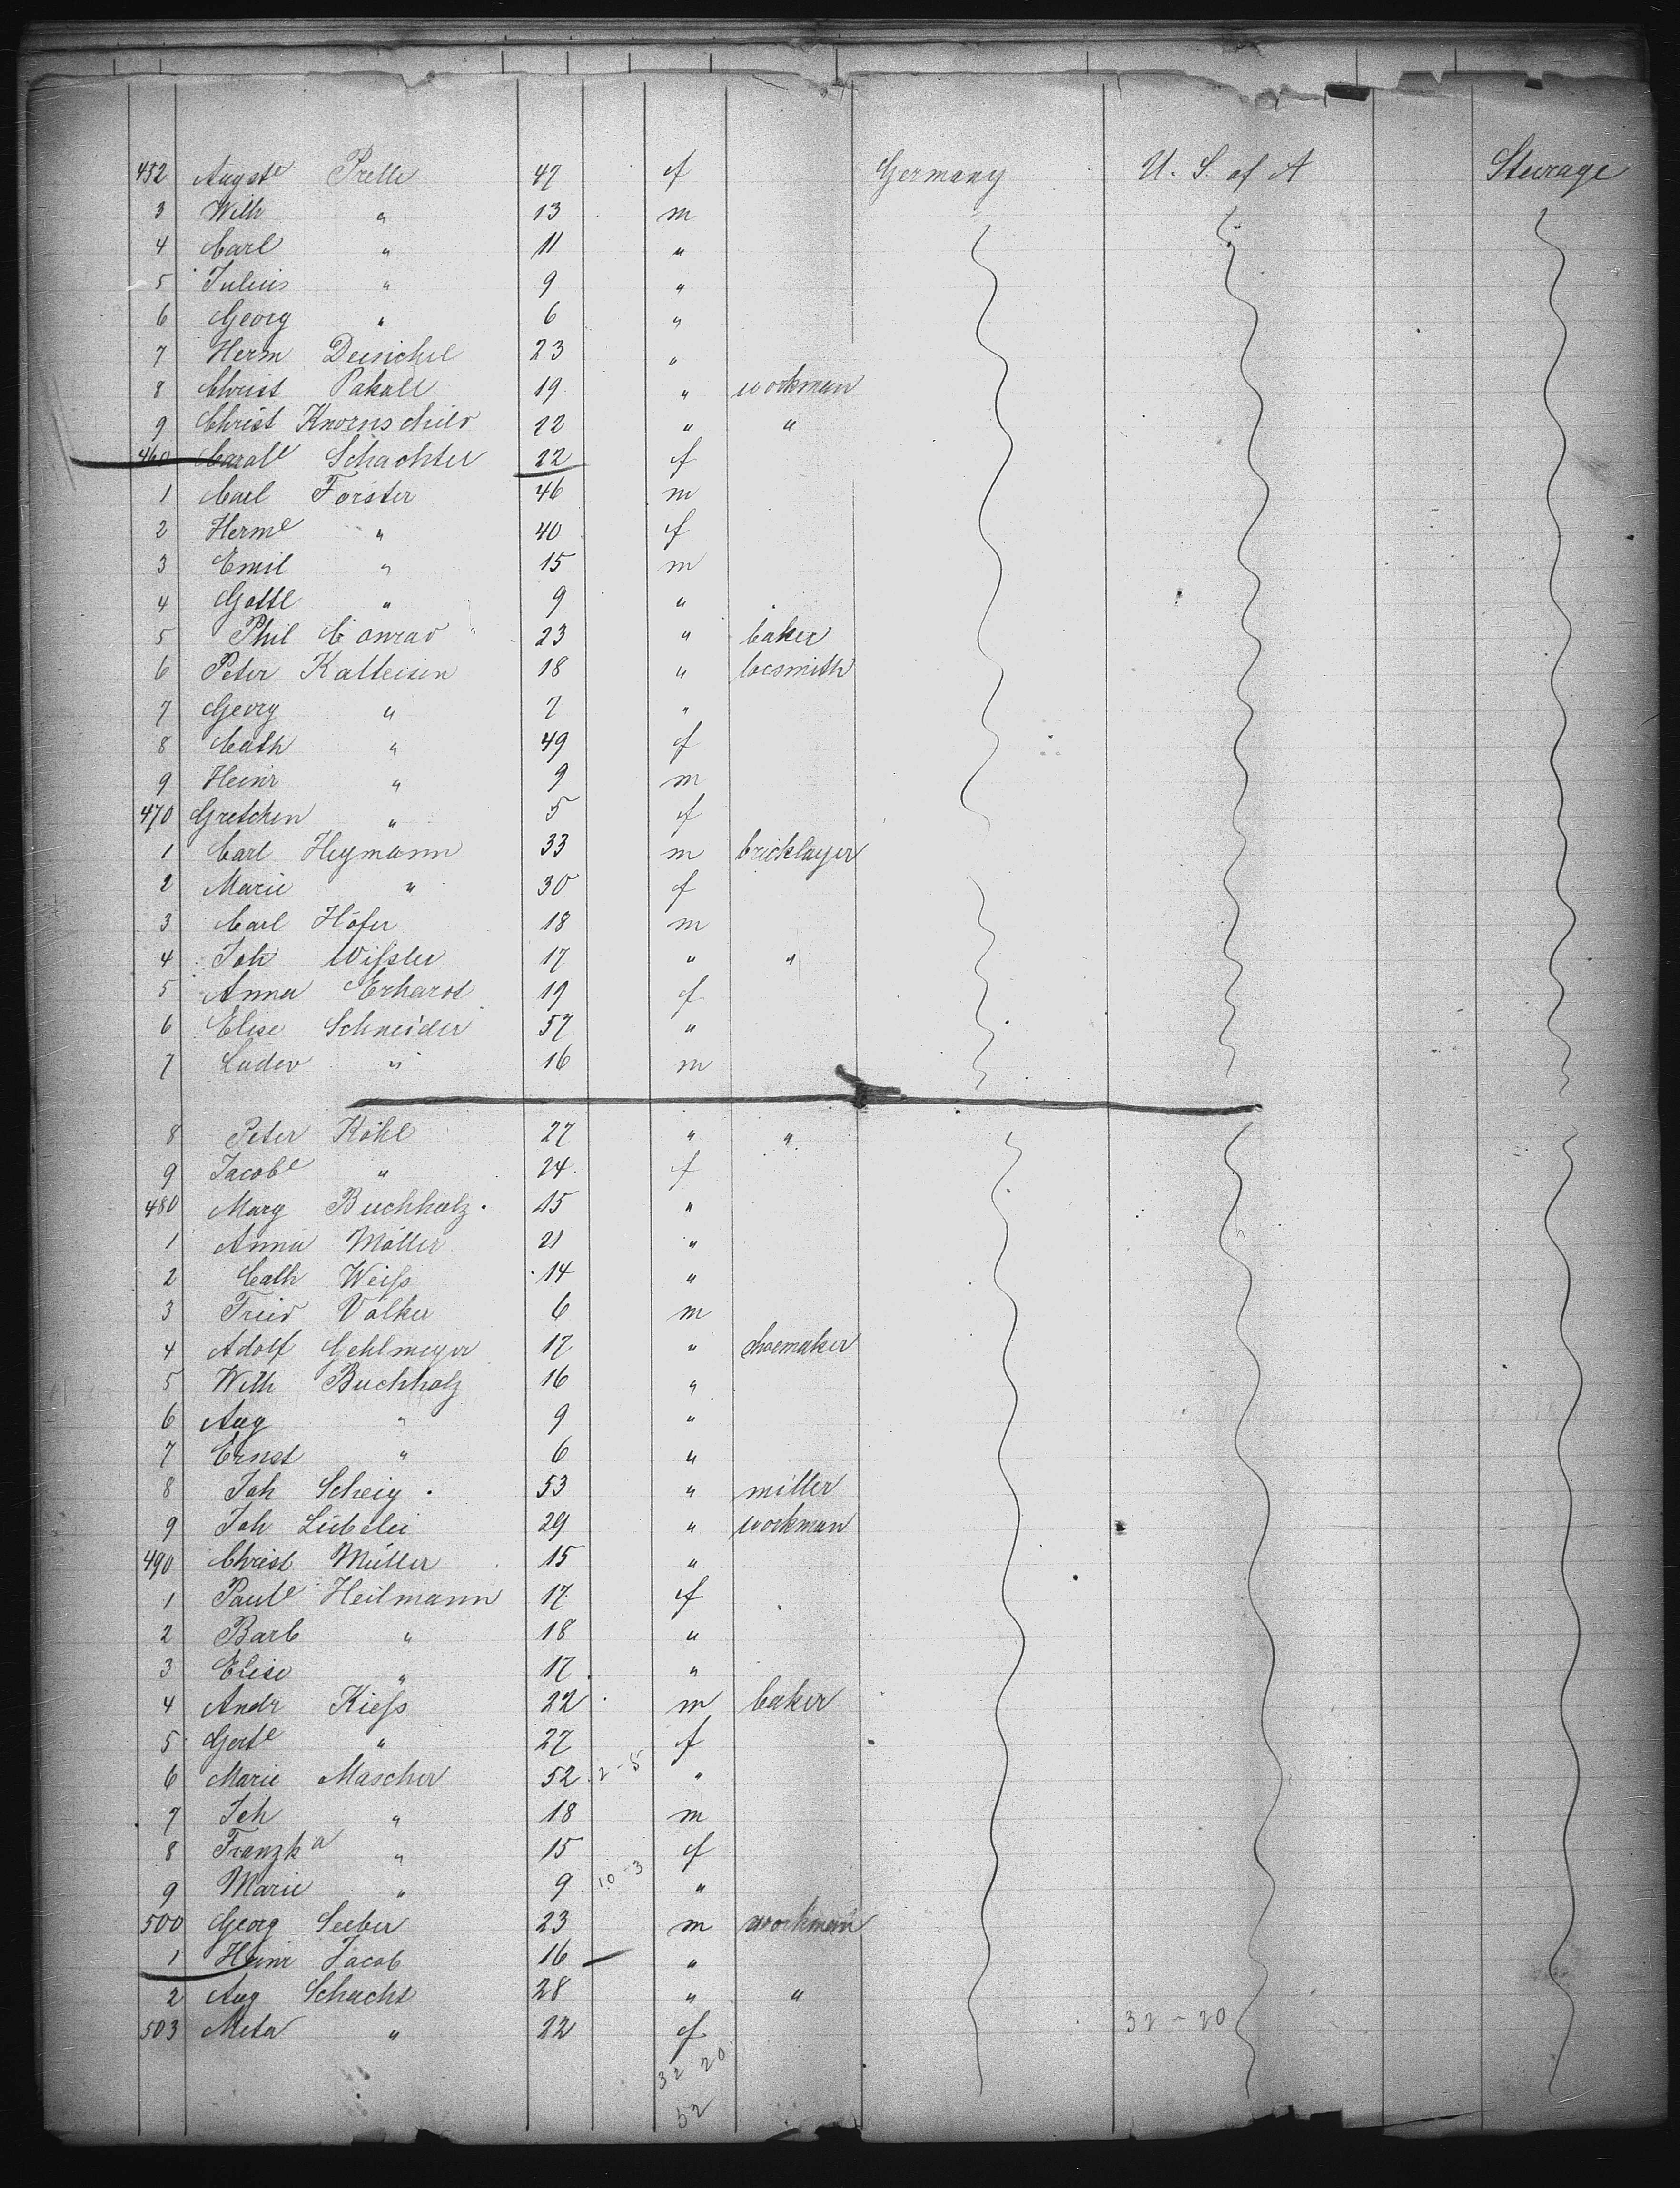 452 Augste Prelle 47 f Germany U. S. of A Steerage
3 Wilh " 13 m
4 Carl " 11 "
5 Julius " 9 "
6 Georg " 6 "
7 Herm Deisichel 23 "
8 Christ Pakall 19 " workman
9 Christ Knornschild 22 " "
460 Carole Schachter 22 f
1 Carl Förster 46 m
2 Herme " 40 f
3 Emil " 15 m
4 Gottl " 9 "
5 Phil Conrad 23 " baker
6 Peter Kalteisen 18 " locsmith
7 Georg " 7 "
8 Cath " 49 f
9 Heinr " 9 m
470 Gretchen " 5 f
1 Carl Heymann 33 m bricklayer
2 Marie " 30 f
3 Carl Höfer 18 m
4 Joh Wißler 17 " "
5 Anna Erhardt 19 f
6 Elise Schneider 57 "
7 Ludw " 16 m
8 Peter Köhl 27 " "
9 Jacobe " 24 f
480 Marg Buchholz 15 "
1 Anna Möller 21 "
2 Cath Weiß 14 "
3 Fried Völker 6 m
4 Adolf Gehlmeyer 17 " shoemaker
5 Wilh Buchholz 16 "
6 Aug " 9 "
7 Ernst " 6 "
8 Joh Scheig 53 " miller
9 Joh Lübelei 29 " workman
490 Christ Müller 15 "
1 Paule Heilmann 17 f
2 Barb " 18 "
3 Elise " 17 "
4 Andr Kieß 22 m baker
5 Gerte " 27 f
6 Marie Mascher 52 2-5 "
7 Joh " 18 m
8 Franzka " 15 f
9 Marie " 9 10-3 "
500 Georg Seeber 23 m workman
1 Heinr Jacob 16 "
2 Aug Schacht 28 " "
503 Meta " 22 f 32-20
32 20
52